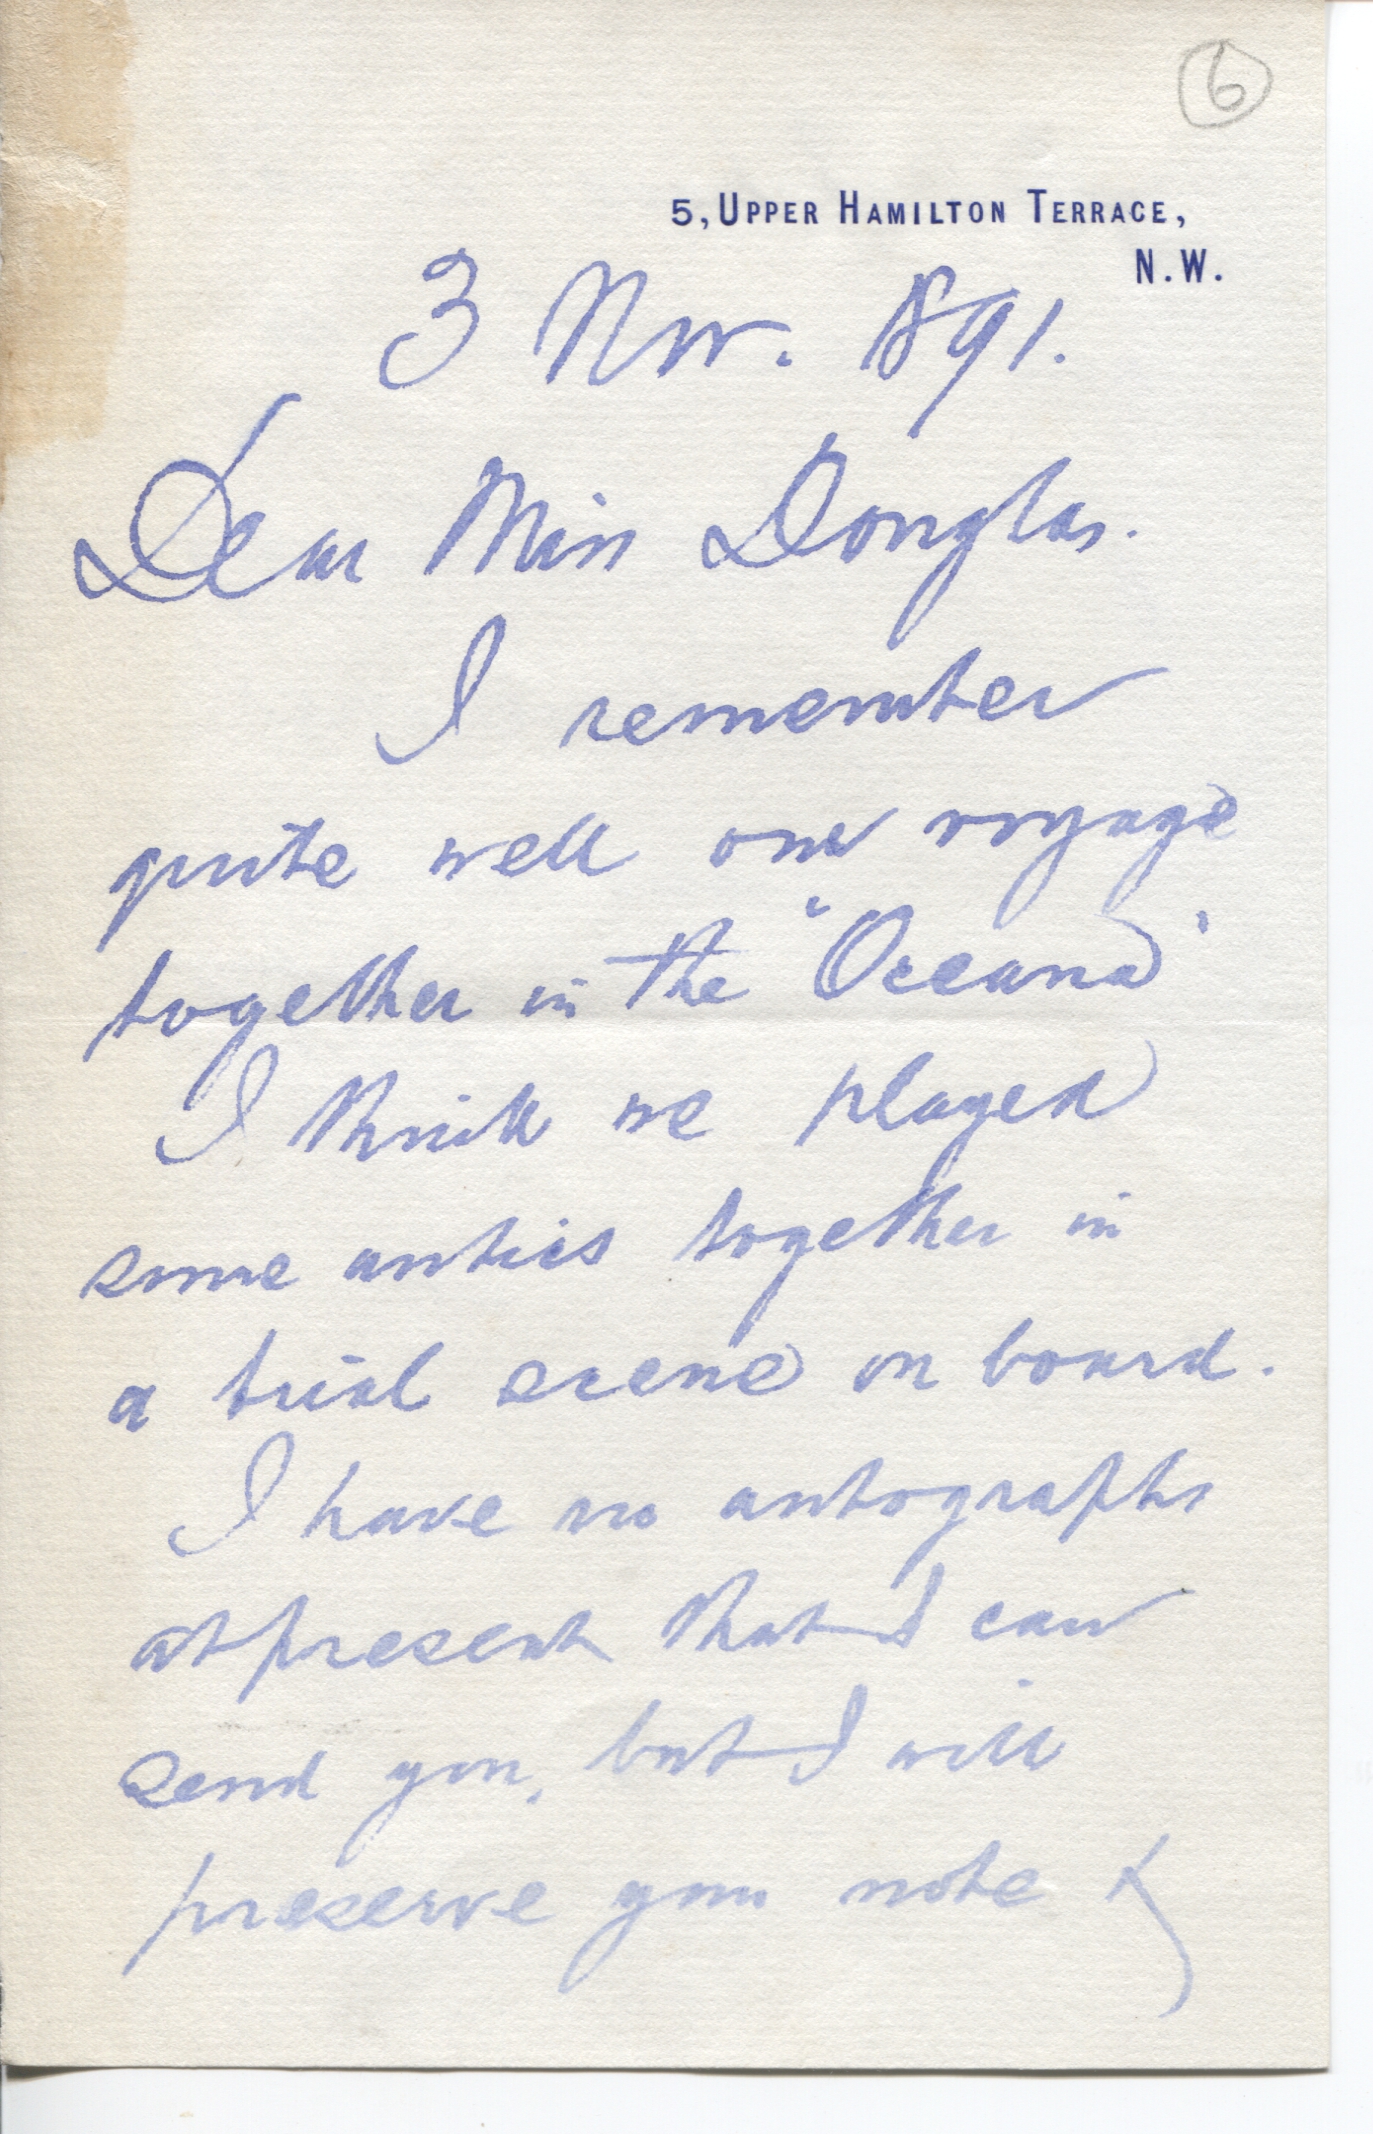 6
5, UPPER HAMILTON TERRACE,
N.W.
3 Nov. 1891.
Dear Miss Douglas.
I remember
quite well our voyage
together in the "Oceana"
I think we played
some antics together in
a trial scene on board.
I have no autographs
at present that I can
send you, but I will
preserve your note &